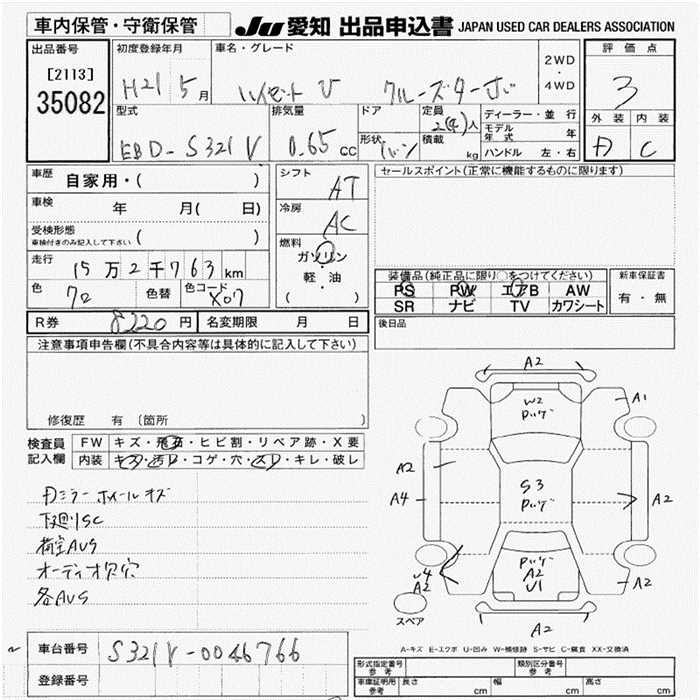 車内保管・守衛保管
JU 愛知 出品申込書 JAPAN USED CAR DEALERS ASSOCIATION
出品番号
[2113]
35082
初度登録年月
H21 5月
車名・グレード
ハイゼット V クルーズターボ
2WD
・
4WD
評価点
3
外装 内装
A C
型式
EBD-S321V
排気量
0.65 cc
ドア
形状
バン
定員
2(4)人
積載
kg
ディーラー・並 行
モデル年式 年
ハンドル 左・右
車歴
自家用・( )
車検
年 月( 日)
受検形態
車検付きのみ記入して下さい ( )
走行
15万2千763km
色
色替
色コード
X07
シフト
AT
冷房
AC
燃料
ガソリン
・
軽・油
( )
セールスポイント(正常に機能するものに限ります)
装備品(純正品に限り○をつけてください)
PS PW エアB AW
SR ナビ TV カワシート
新車保証書
有・無
R券 8220円
名変期限 月 日
後日品
注意事項申告欄(不具合内容等は具体的に記入して下さい)
修復歴 有 〔箇所
検査員
記入欄
FW キズ・飛石・ヒビ割・リペア跡・X要
内装 キズ・汚レ・コゲ・穴・スレ・キレ・破レ
ミラー ホイールキズ
下廻りSC
荷室AUS
オーディオ欠穴
各AUS
A2
A1
W2
A2
A4
S3
A2
A2
U1
A2
A2
A2
スペア
A-キズ E-エクボ U-凹み W-補修跡 S-サビ C-腐食 XX-交換済
車台番号
S321V-0046766
登録番号
形式指定番号
参考
類別区分番号
参考
車庫証明用
参考
長さ cm
幅 cm
高さ cm